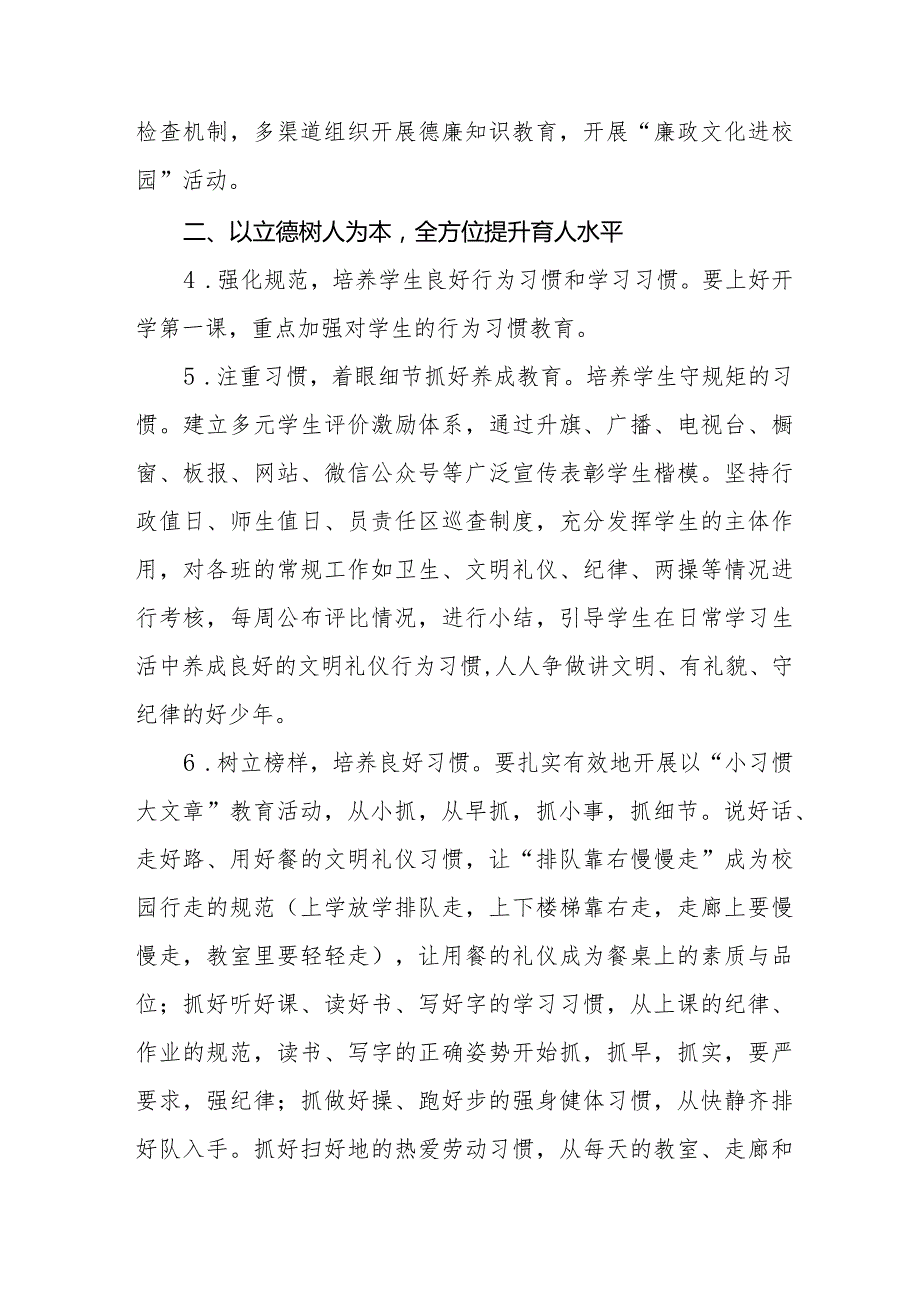 检查机制，多渠道组织开展德廉知识教育，开展“廉政文化进校
园”活动。
二、以立德树人为本，全方位提升育人水平
4.强化规范，培养学生良好行为习惯和学习习惯。要上好开
学第一课，重点加强对学生的行为习惯教育。
5.注重习惯，着眼细节抓好养成教育。培养学生守规矩的习
惯。建立多元学生评价激励体系，通过升旗、广播、电视台、橱
窗、板报、网站、微信公众号等广泛宣传表彰学生楷模。坚持行
政值日、师生值日、员责任区巡查制度，充分发挥学生的主体作
用，对各班的常规工作如卫生、文明礼仪、纪律、两操等情况进
行考核，每周公布评比情况，进行小结，引导学生在日常学习生
活中养成良好的文明礼仪行为习惯,人人争做讲文明、有礼貌、守
纪律的好少年。
6.树立榜样，培养良好习惯。要扎实有效地开展以“小习惯
大文章”教育活动，从小抓，从早抓，抓小事，抓细节。说好话、
走好路、用好餐的文明礼仪习惯，让“排队靠右慢慢走”成为校
园行走的规范（上学放学排队走，上下楼梯靠右走，走廊上要慢
慢走，教室里要轻轻走），让用餐的礼仪成为餐桌上的素质与品
位；抓好听好课、读好书、写好字的学习习惯，从上课的纪律、
作业的规范，读书、写字的正确姿势开始抓，抓早，抓实，要严
要求，强纪律；抓做好操、跑好步的强身健体习惯，从快静齐排
好队入手。抓好扫好地的热爱劳动习惯，从每天的教室、走廊和